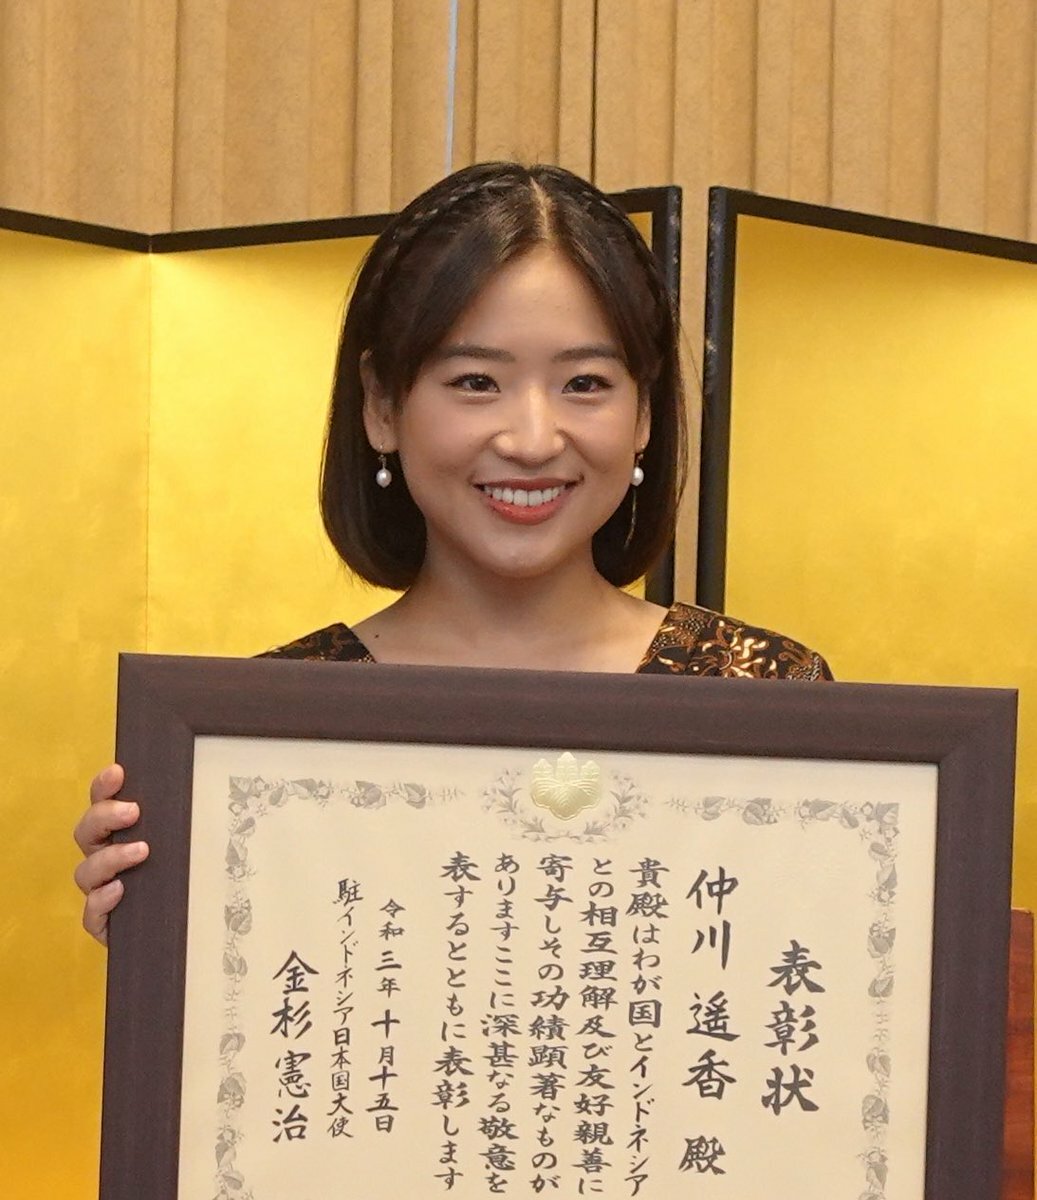 表彰状
仲川遥香殿
貴殿はわが国とインドネシア
との相互理解及び友好親善に
寄与しその功績顕著なものが
ありますここに深甚なる敬意を
表するとともに表彰します
令和三年十月十五日
駐インドネシア日本国大使
金杉憲治